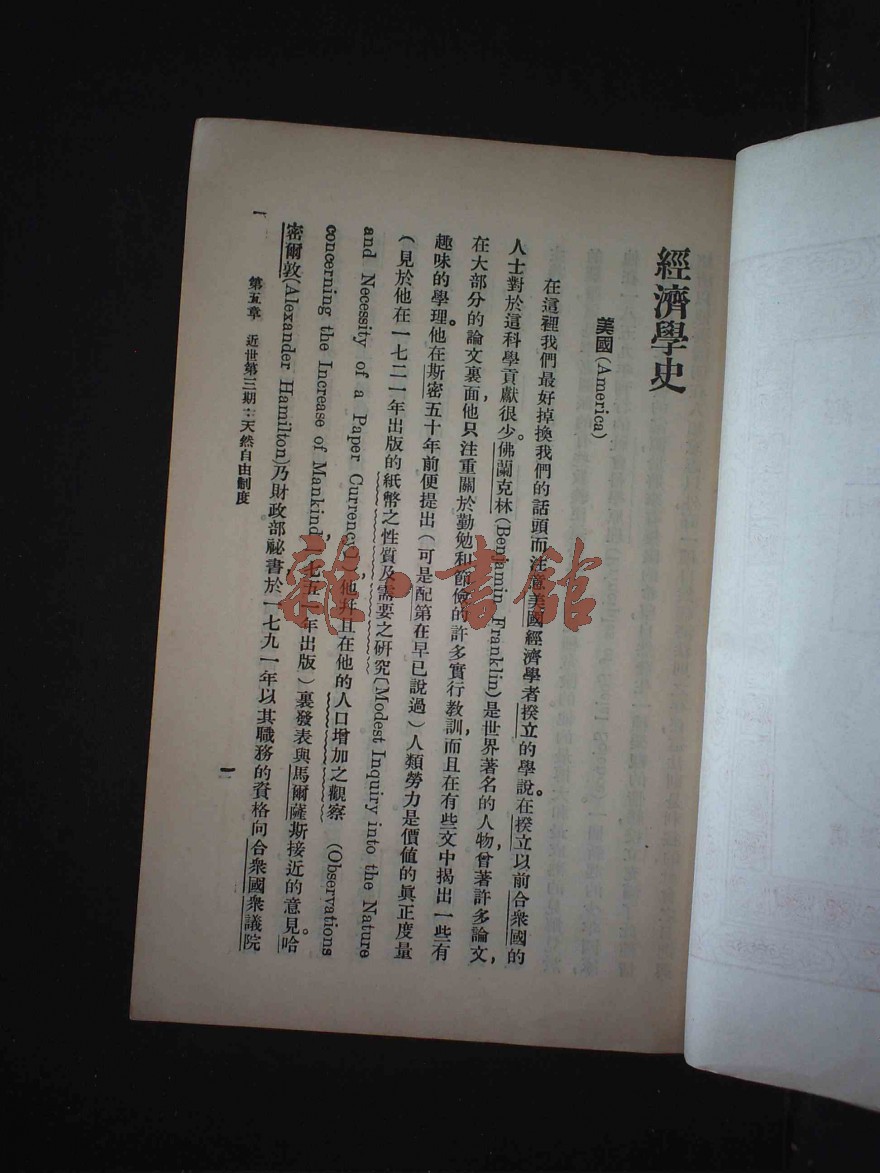 經濟學史
美國(America)
在這裡我們最好掉換我們的話頭而注意美國經濟學者揆立的學說。在揆立以前合衆國的
人士對於這科學貢獻很少。佛蘭克林(Benjamin Franklin)是世界著名的人物，曾著許多論文，
在大部分的論文裏面，他只注重關於勤勉和節儉的許多實行教訓，而且在有些文中揭出一些有
趣味的學理。他在斯密五十年前便提出（可是配第在早已說過）人類勞力是價值的眞正度量
（見於他在一七二一年出版的紙幣之性質及需要之研究(Modest Inquiry into the Nature
and Necessity of a Paper Currency)，他幷且在他的人口增加之觀察 (Observations
concerning the Increase of Mankind，一七五一年出版）裏發表與馬爾薩斯接近的意見。哈
密爾敦(Alexander Hamilton)乃財政部祕書於一七九一年以其職務的資格向合衆國衆議院
第五章 近世第三期：天然自由制度
一
雜·書館